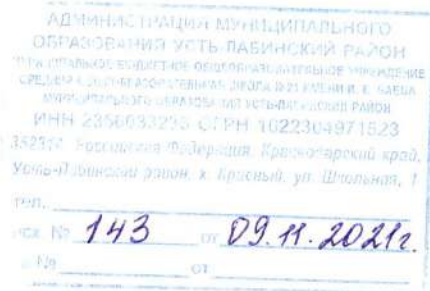 АДМИНИСТРАЦИЯ МУНИЦИПАЛЬНОГО
ОБРАЗОВАНИЯ УСТЬ-ЛАБИНСКИЙ РАЙОН
МУНИЦИПАЛЬНОЕ БЮДЖЕТНОЕ ОБЩЕОБРАЗОВАТЕЛЬНОЕ УЧРЕЖДЕНИЕ
СРЕДНЯЯ ОБЩЕОБРАЗОВАТЕЛЬНАЯ ШКОЛА № 21 ИМЕНИ
МУНИЦИПАЛЬНОГО ОБРАЗОВАНИЯ УСТЬ-ЛАБИНСКИЙ РАЙОН
ИНН 2356033235 ОГРН 1022304971523
Российская Федерация, Краснодарский край,
Усть-Лабинский район, х. Красный, ул. Школьная, 1
тел.
исх. № 143 от 09.11.2021г.
№ от